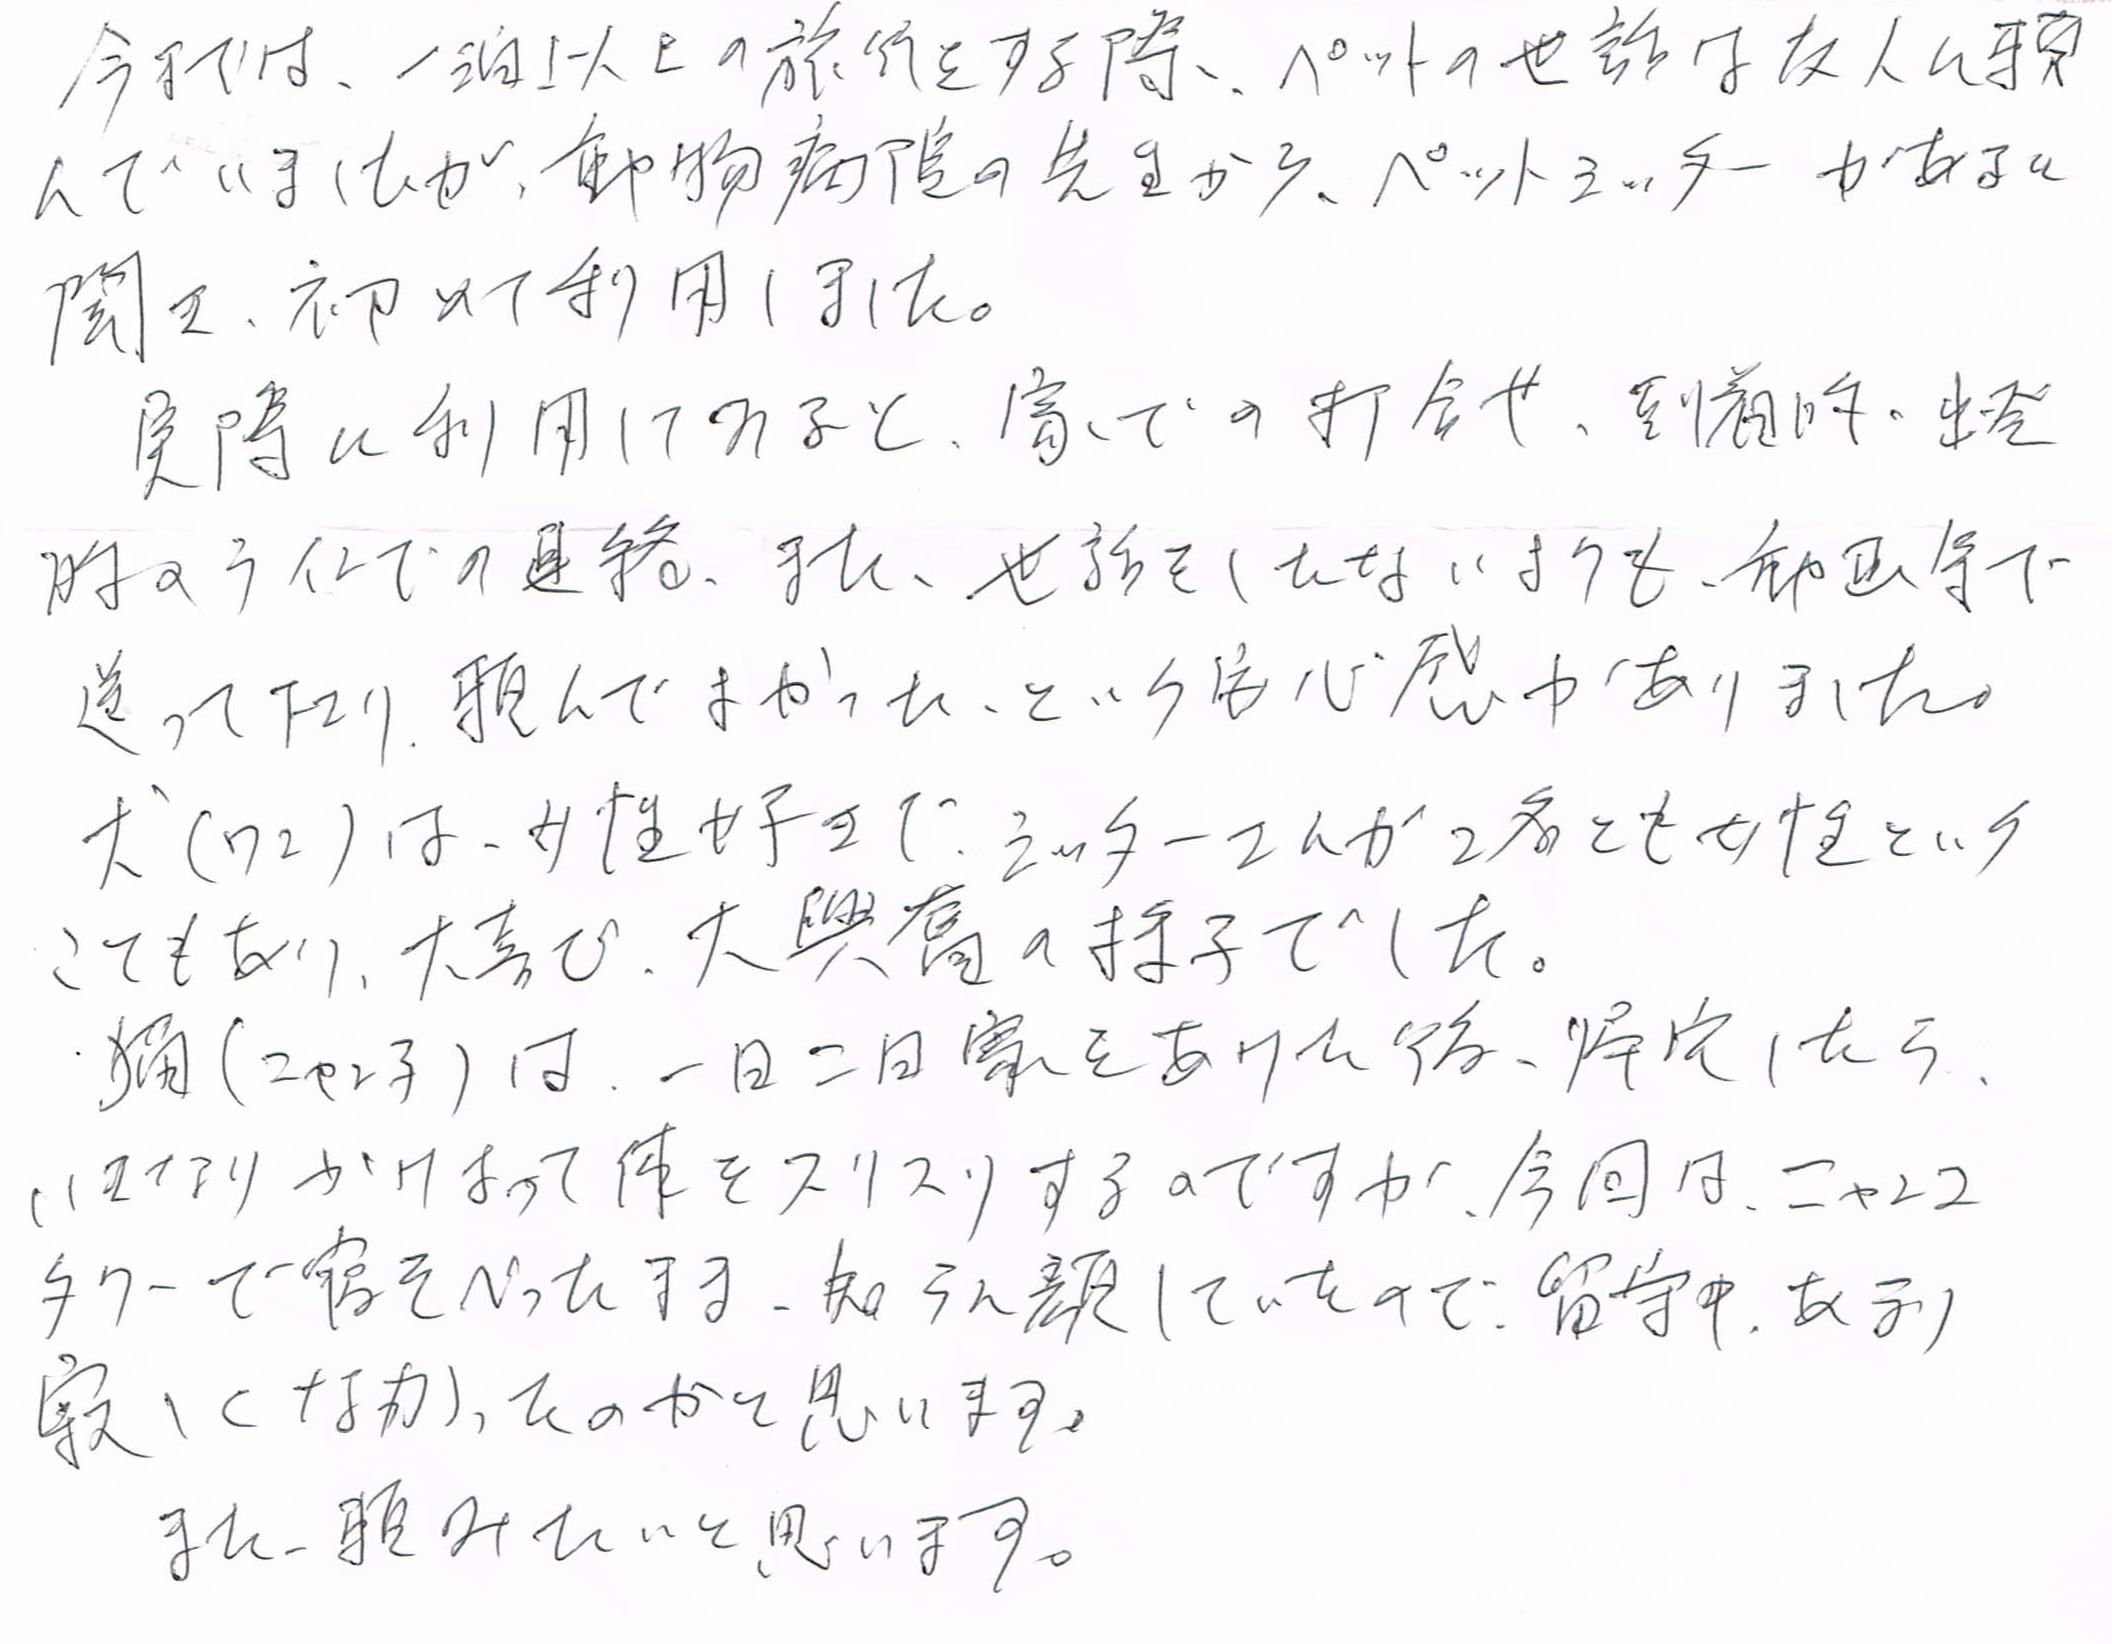 今までは、一泊以上の旅行をする際、ペットの世話は友人に頼
んでいましたが、動物病院の先生から、ペットシッターがあると
聞き、初めて利用しました。
実際に利用してみると、家での打合せ、到着時・出発
時のラインでの連絡、また、世話をしたないようも、動画等で
送って下さり、頼んでよかった、という安心感がありました。
犬(ワン)は、女性好きで、シッターさんが2名とも女性という
こともあり、大喜び、大興奮の様子でした。
猫(ニャン子)は、一日二日家をあけた後、帰宅したら、
いきなりかけよって体をスリスリするのですが、今回は、ニャンコ
タワーで寝そべったまま、知らん顔していたので、留守中、あまり
寂しくなかったのかと思います。
また、頼みたいと思います。